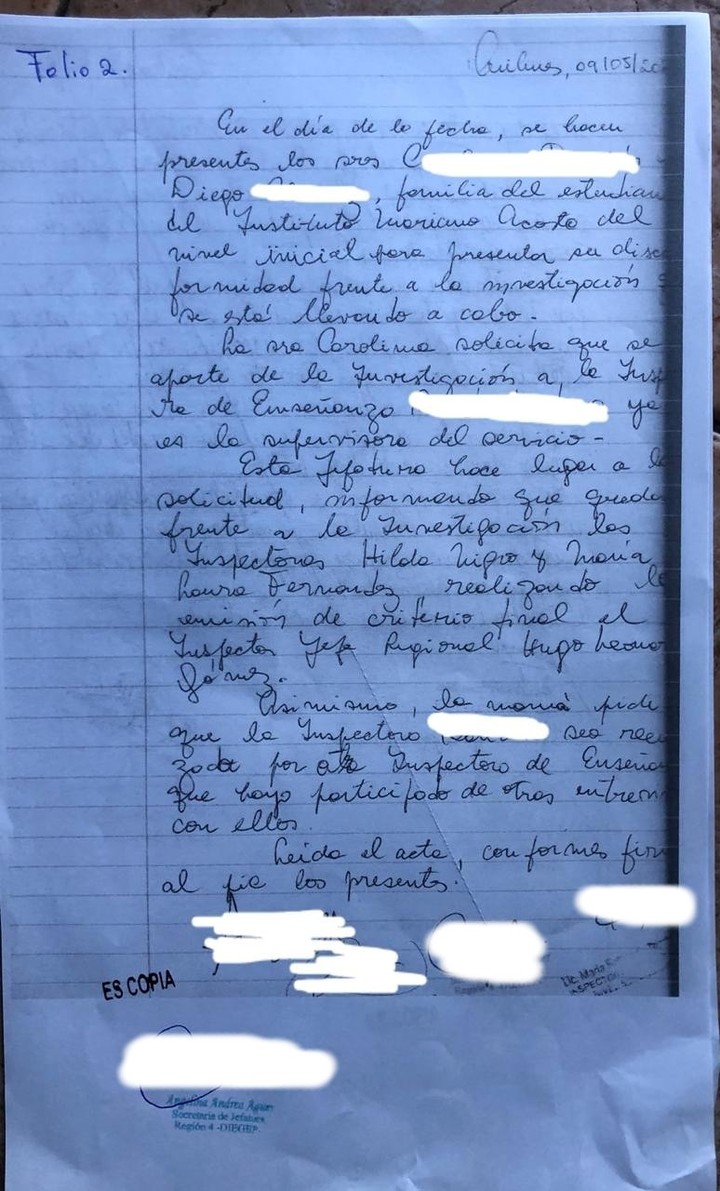 Folio 2.
Quilmes, 09/05/20
En el día de la fecha, se hacen
presentes los sres C
Diego , familia del estudian
del Instituto Mariano Acosta del
nivel inicial para presentar su disco
formidad frente a la investigación
se está llevando a cabo.
La sra Carolina solicita que se
aparte de la Investigación a la Insp
tra de Enseñanza ya
es la supervisora del servicio-
Esta Jefatura hace lugar a l
solicitud, informando que queda
frente a la Investigación las
Inspectoras Hilda Nigro y María
Laura Fernandez, realizando l
emisión de criterio final el
Inspector Jefe Regional Hugo Leona
Gómez.
Asimismo, la mamá pide
que la Inspectora sea reem
zada por otra Inspectora de Enseña
que haya participado de otras entrev
con ellos.
Leída el acta, conformes firm
al pie los presentes.
Lic. María
INSPECTO
ES COPIA
Angelina Andrea
Secretaria de Jefatura
Región 4 -DIEGEP